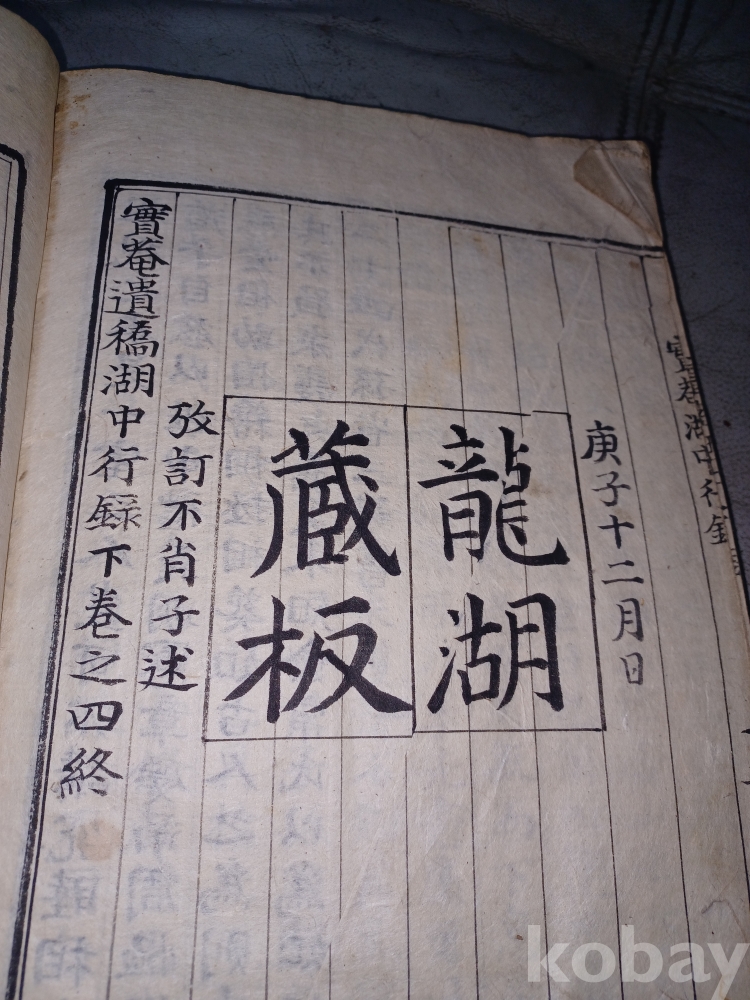 庚子十二月日
龍湖
蔵板
攷訂不肖子述
實菴遺稿湖中行錄下卷之四終
實菴湖中行錄
kobay